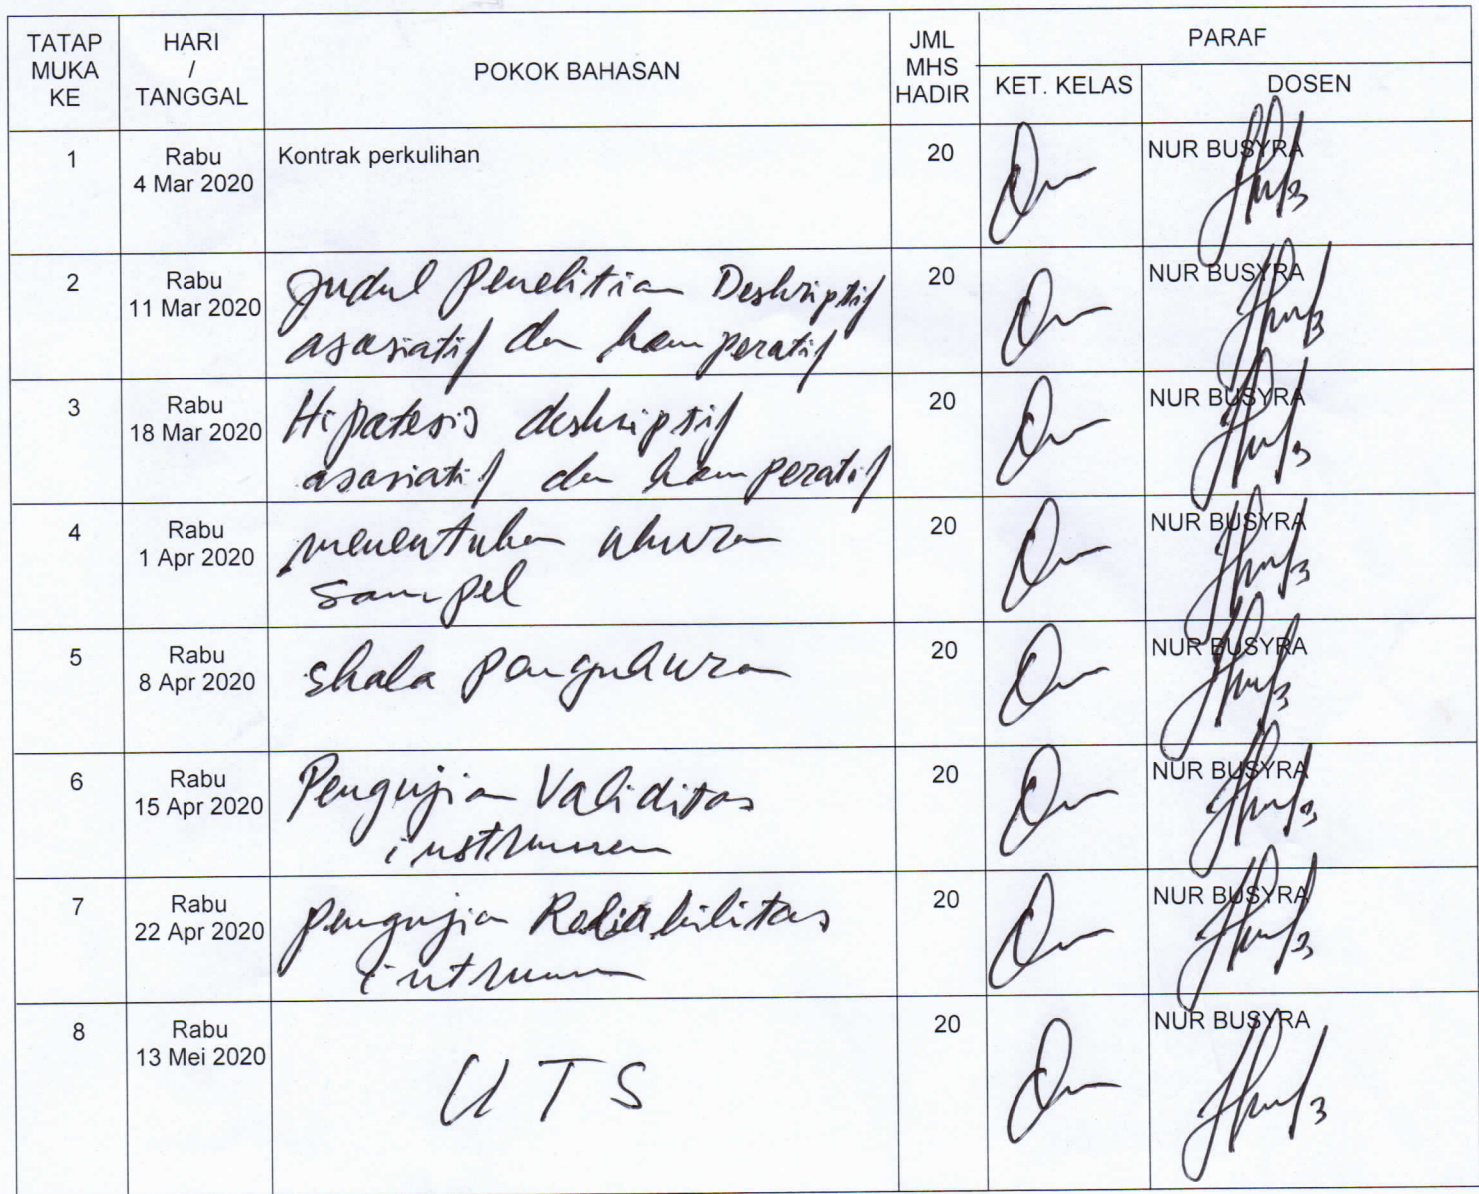 TATAP MUKA KE
HARI / TANGGAL
POKOK BAHASAN
JML MHS HADIR
PARAF
KET. KELAS
DOSEN
1
Rabu
4 Mar 2020
Kontrak perkulihan
20
NUR BUSYRA
2
Rabu
11 Mar 2020
Judul Penelitian Deskriptif
asosiatif dan komperatif
20
NUR BUSYRA
3
Rabu
18 Mar 2020
Hipotesis deskriptif
asosiatif dan komperatif
20
NUR BUSYRA
4
Rabu
1 Apr 2020
menentukan ukuran
sampel
20
NUR BUSYRA
5
Rabu
8 Apr 2020
skala pengukuran
20
NUR BUSYRA
6
Rabu
15 Apr 2020
Pengujian Validitas
instrumen
20
NUR BUSYRA
7
Rabu
22 Apr 2020
pengujian Reliabilitas
intrumen
20
NUR BUSYRA
8
Rabu
13 Mei 2020
UTS
20
NUR BUSYRA